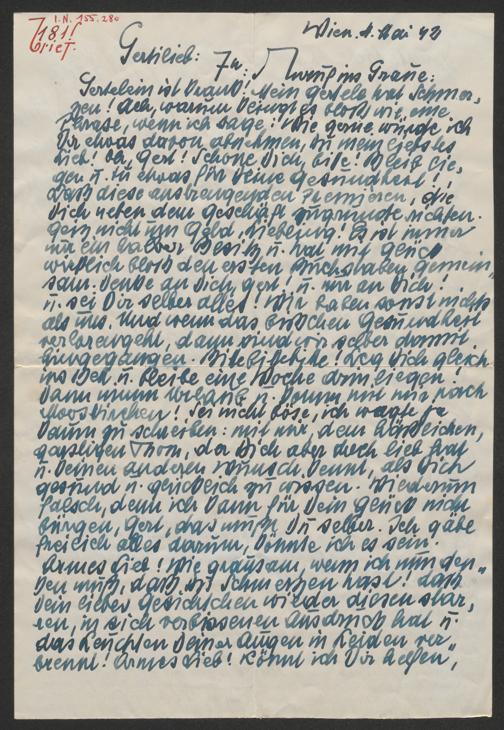 I.N. 155.280
181
Brief.
Wien. 4. Mai 43
Gertilieb:
ins Graue:
Gertelein ist krank! Mein Gertele hat Schmer-
zen! Ach, warum klingt es bloß wie eine
Phrase, wenn ich sage: Wie gerne würde ich
Dir etwas davon abnehmen, Du mein liebstes
Lieb! Oh, Gert! Schone Dich, bitte! Bleib lie-
gen u. tu etwas für Deine Gesundheit!
Daß diese anstrengenden Premieren, die
Dich neben dem Geschäft zugrunde richten.
Geiz nicht um Geld, Liebling! Es ist immer
nur ein halber Besitz u. hat mit Glück
wirklich bloß den ersten Buchstaben gemein-
sam. Denke an Dich, Gert! u. nur an Dich!
u. sei Dir selber alles! Wir haben sonst nichts
als uns. Und wenn das bißchen Gesundheit
verlorengeht, dann sind wir selber damit
hingegangen. Bittebittebitte! Leg Dich gleich
ins Bett u. bleibe eine Woche drin liegen!
Dann nimm Urlaub u. komm mit mir nach
Mooskirchen! Sei nicht böse, ich wage ja
kaum zu schreiben: mit mir, dem
garstigen Thom, der Dich aber doch lieb hat
u. keinen anderen Wunsch kennt, als Dich
gesund u. glücklich zu wissen. Wiederum
falsch, denn ich kann für Dein Glück nicht
bürgen, Gert, das mußt Du selber. Ich gäbe
freilich alles darum, könnte ich es sein.
Armes Lieb! Wie grausam, wenn ich nun den-
ken muß, daß Du Schmerzen hast! Daß
Dein liebes Gesichtchen wieder diesen star-
ren, in sich verbissenen Ausdruck hat u.
das Leuchten Deiner Augen in Leiden ver-
brennt! Armes Lieb! Könnt ich Dir helfen,